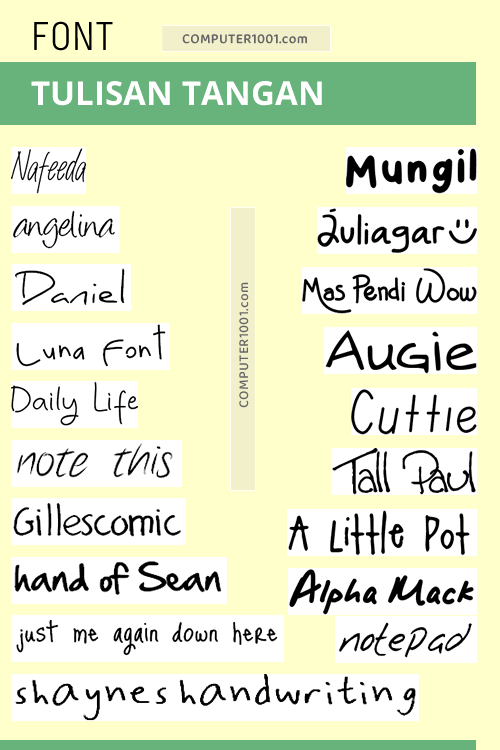 FONT
COMPUTER1001.com
TULISAN TANGAN
Nafeeda
Mungil
angelina
Juliagar
Daniel
Mas Pendi Wow
Luna Font
AUGIE
Daily Life
Cuttie
note this
Tall Paul
Gillescomic
A Little Pot
hand of Sean
Alpha Mack
just me again down here
notepad
shaynes handwriting
COMPUTER1001.com